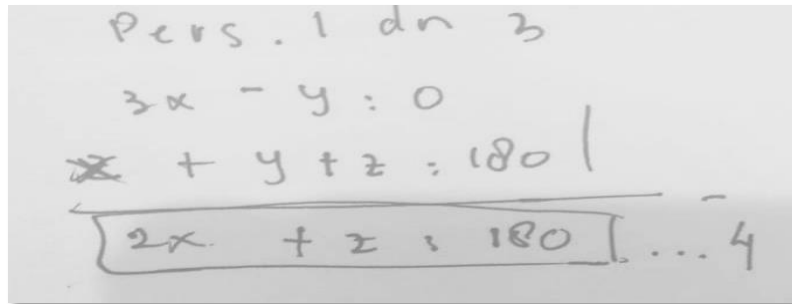 Pers. 1 dn 3
3x - y : 0
x + y + z : 180 |
-
2x + z : 180 .... 4